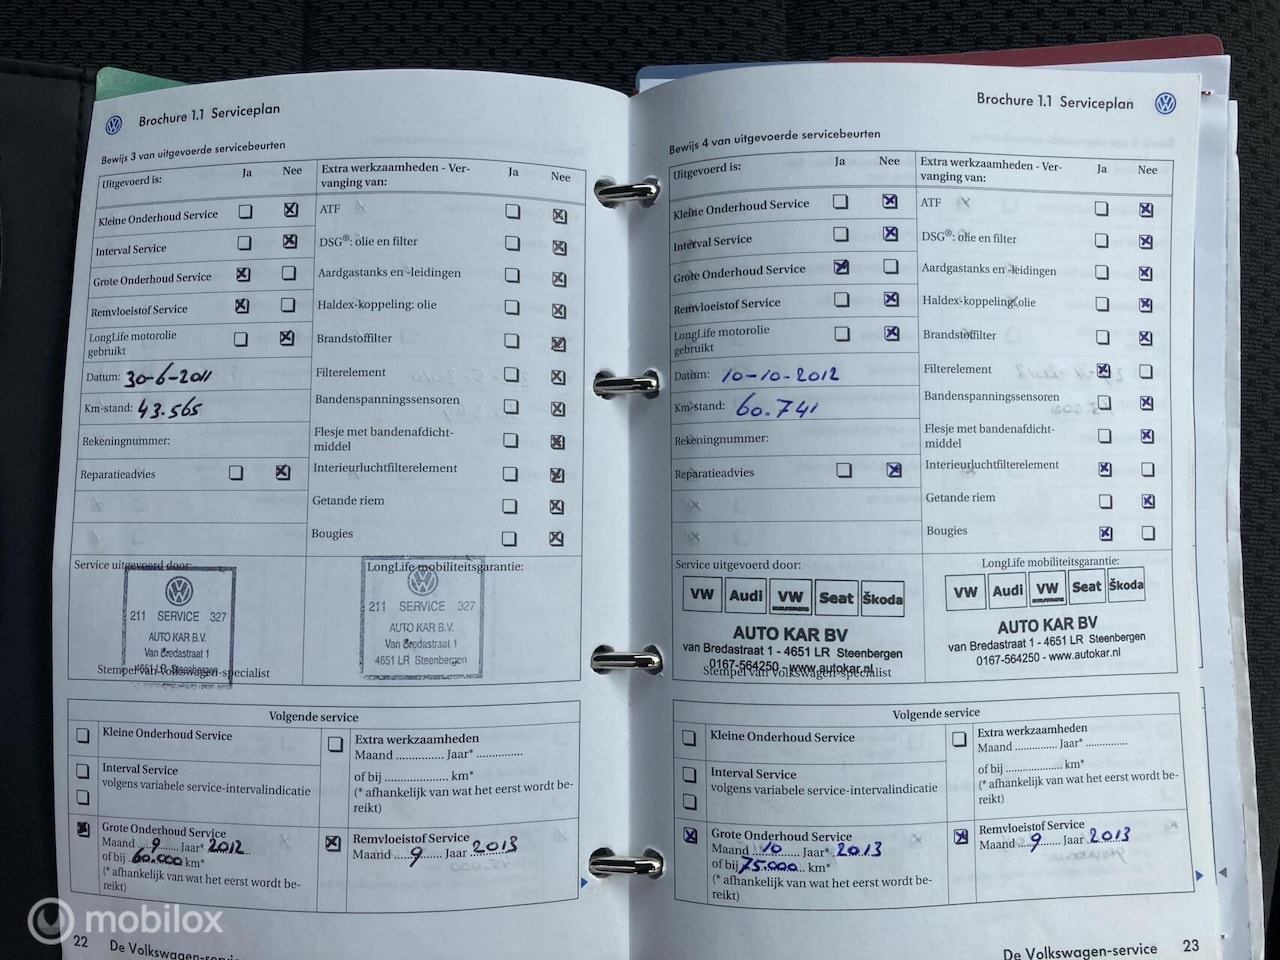 Brochure 1.1 Serviceplan
Bewijs 3 van uitgevoerde servicebeurten
Uitgevoerd is: Ja Nee
Kleine Onderhoud Service
Interval Service
Grote Onderhoud Service
Remvloeistof Service
LongLife motorolie
gebruikt
Datum: 30-6-2011
Km-stand: 43.565
Rekeningnummer:
Reparatieadvies
Extra werkzaamheden - Ver-
vanging van: Ja Nee
ATF
DSG®: olie en filter
Aardgastanks en -leidingen
Haldex-koppeling: olie
Brandstoffilter
Filterelement
Bandenspanningssensoren
Flesje met bandenafdicht-
middel
Interieurluchtfilterelement
Getande riem
Bougies
Service uitgevoerd door:
211 SERVICE 327
AUTO KAR B.V.
Van Bredastraat 1
4651 LR Steenbergen
Stempel van Volkswagen-specialist
LongLife mobiliteitsgarantie:
211 SERVICE 327
AUTO KAR B.V.
Van Bredastraat 1
4651 LR Steenbergen
Volgende service
Kleine Onderhoud Service
Interval Service
volgens variabele service-intervalindicatie
Grote Onderhoud Service
Maand 9 Jaar* 2012
of bij 60.000 km*
(* afhankelijk van wat het eerst wordt be-
reikt)
Extra werkzaamheden
Maand ............... Jaar* ...............
of bij .................... km*
(* afhankelijk van wat het eerst wordt be-
reikt)
Remvloeistof Service
Maand 9 Jaar 2013
22 De Volkswagen-service
Brochure 1.1 Serviceplan
Bewijs 4 van uitgevoerde servicebeurten
Uitgevoerd is: Ja Nee
Kleine Onderhoud Service
Interval Service
Grote Onderhoud Service
Remvloeistof Service
LongLife motorolie
gebruikt
Datum: 10-10-2012
Km-stand: 60.741
Rekeningnummer:
Reparatieadvies
Extra werkzaamheden - Ver-
vanging van: Ja Nee
ATF
DSG®: olie en filter
Aardgastanks en -leidingen
Haldex-koppeling: olie
Brandstoffilter
Filterelement
Bandenspanningssensoren
Flesje met bandenafdicht-
middel
Interieurluchtfilterelement
Getande riem
Bougies
Service uitgevoerd door:
VW Audi VW Seat Škoda
AUTO KAR BV
van Bredastraat 1 - 4651 LR Steenbergen
0167-564250 - www.autokar.nl
Stempel van Volkswagen-specialist
LongLife mobiliteitsgarantie:
VW Audi VW Seat Škoda
AUTO KAR BV
van Bredastraat 1 - 4651 LR Steenbergen
0167-564250 - www.autokar.nl
Volgende service
Kleine Onderhoud Service
Interval Service
volgens variabele service-intervalindicatie
Grote Onderhoud Service
Maand 10 Jaar* 2013
of bij 75.000 km*
(* afhankelijk van wat het eerst wordt be-
reikt)
Extra werkzaamheden
Maand ............... Jaar* ...............
of bij .................... km*
(* afhankelijk van wat het eerst wordt be-
reikt)
Remvloeistof Service
Maand 9 Jaar 2013
De Volkswagen-service 23
mobilox